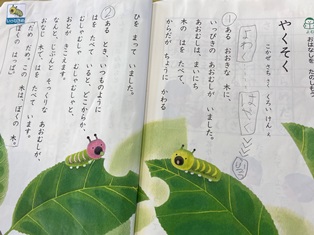 おはなしを たのしもう
やくそく
こかぜ さち さく
くろい けん え
①
ある おおきな 木に、
いっぴきの あおむしが いました。
あおむしは、まいにち
木の はを たべて、
からだが ちょうに かわる
ひを まって いました。
②
ある とき、いつものように
はを たべて いると、どこからか、
むしゃむしゃ むしゃむしゃと、
おとが きこえます。
なんと、じぶんと そっくりな あおむしが、
おなじ 木で、はを たべて います。
「だめだめ。この 木は、ぼくの 木。
ぼくの はっぱ。」